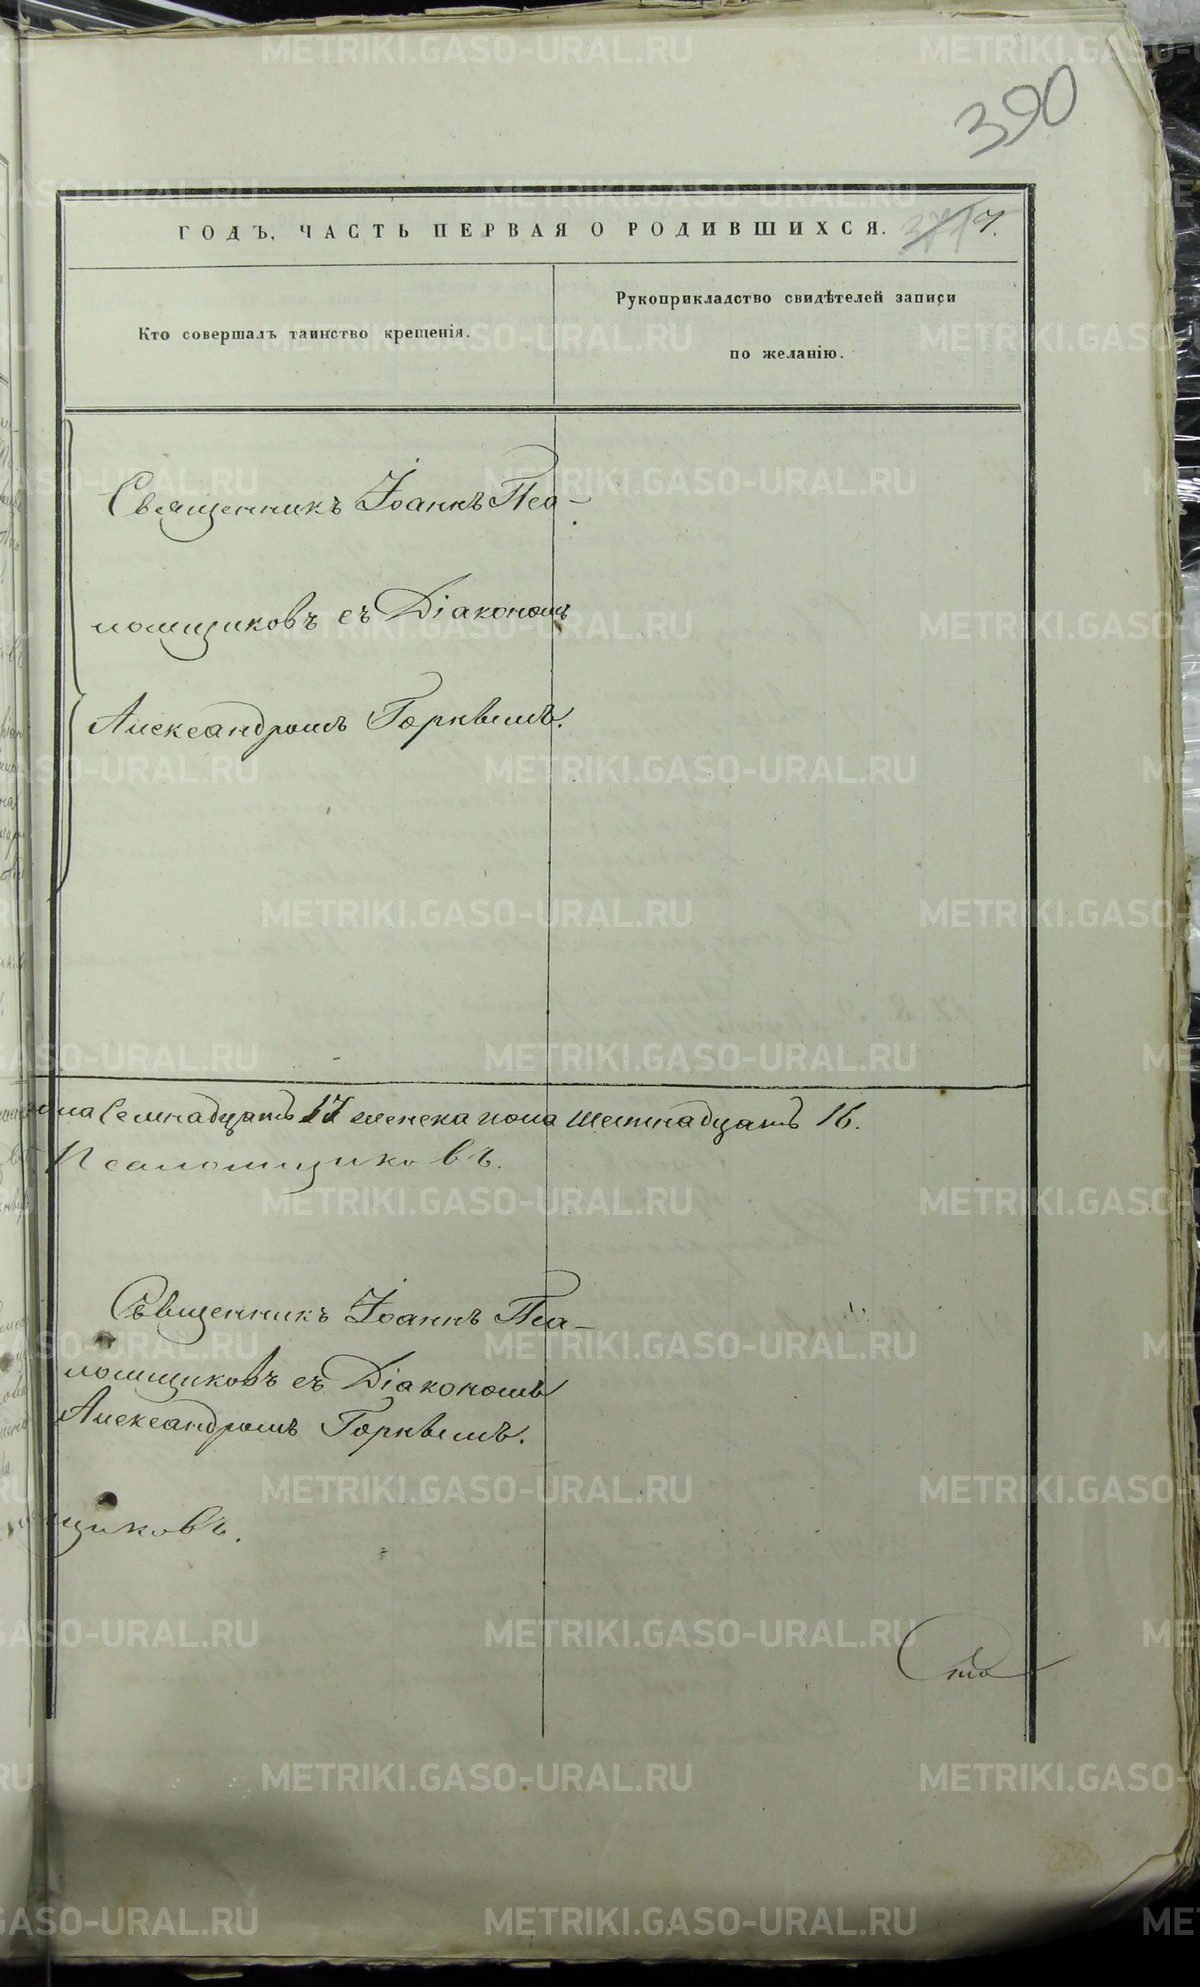 390
ГОДЪ, ЧАСТЬ ПЕРВАЯ О РОДИВШИХСЯ. 7.
Кто совершалъ таинство крещенія.
Рукоприкладство свидѣтелей записи
по желанію.
Священникъ Іоаннъ Пса-
ломщиковъ съ Діакономъ
Александромъ Горнвымъ.
па Семнадцать 17 женска пола шестнадцать 16.
Псаломщиковъ.
Свщенникъ Іоаннъ Пса-
ломщиковъ съ Діакономъ
Александромъ Горнвымъ.
щиковъ.
METRIKI.GASO-URAL.RU